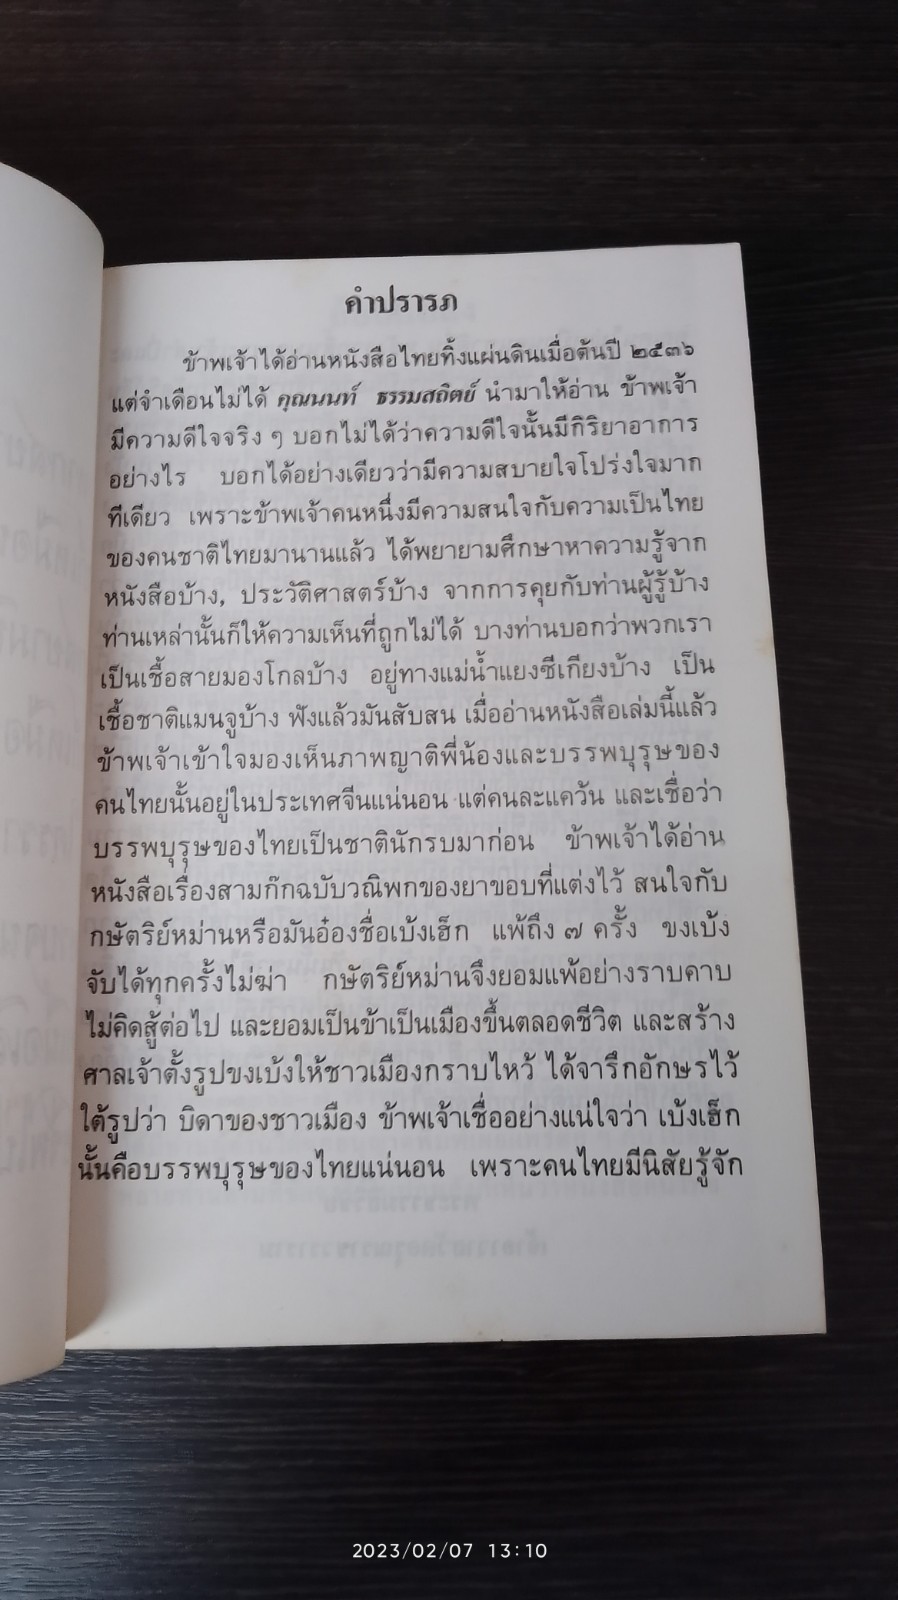 คำปรารภ
ข้าพเจ้าได้อ่านหนังสือไทยทิ้งแผ่นดินเมื่อต้นปี ๒๕๓๖
แต่จำเดือนไม่ได้ คุณนนท์ ธรรมสถิตย์ นำมาให้อ่าน ข้าพเจ้า
มีความดีใจจริง ๆ บอกไม่ได้ว่าความดีใจนั้นมีกิริยาอาการ
อย่างไร บอกได้อย่างเดียวว่ามีความสบายใจโปร่งใจมาก
ทีเดียว เพราะข้าพเจ้าคนหนึ่งมีความสนใจกับความเป็นไทย
ของคนชาติไทยมานานแล้ว ได้พยายามศึกษาหาความรู้จาก
หนังสือบ้าง, ประวัติศาสตร์บ้าง จากการคุยกับท่านผู้รู้บ้าง
ท่านเหล่านั้นก็ให้ความเห็นที่ถูกไม่ได้ บางท่านบอกว่าพวกเรา
เป็นเชื้อสายมองโกลบ้าง อยู่ทางแม่น้ำแยงซีเกียงบ้าง เป็น
เชื้อชาติแมนจูบ้าง ฟังแล้วมันสับสน เมื่ออ่านหนังสือเล่มนี้แล้ว
ข้าพเจ้าเข้าใจมองเห็นภาพญาติพี่น้องและบรรพบุรุษของ
คนไทยนั้นอยู่ในประเทศจีนแน่นอน แต่คนละแคว้น และเชื่อว่า
บรรพบุรุษของไทยเป็นชาตินักรบมาก่อน ข้าพเจ้าได้อ่าน
หนังสือเรื่องสามก๊กฉบับวณิพกของยาขอบที่แต่งไว้ สนใจกับ
กษัตริย์หม่านหรือมันอ๋องชื่อเบ้งเฮ็ก แพ้ถึง ๗ ครั้ง ขงเบ้ง
จับได้ทุกครั้งไม่ฆ่า กษัตริย์หม่านจึงยอมแพ้อย่างราบคาบ
ไม่คิดสู้ต่อไป และยอมเป็นข้าเป็นเมืองขึ้นตลอดชีวิต และสร้าง
ศาลเจ้าตั้งรูปขงเบ้งให้ชาวเมืองกราบไหว้ ได้จารึกอักษรไว้
ใต้รูปว่า บิดาของชาวเมือง ข้าพเจ้าเชื่ออย่างแน่ใจว่า เบ้งเฮ็ก
นั้นคือบรรพบุรุษของไทยแน่นอน เพราะคนไทยมีนิสัยรู้จัก
2023/02/07 13:10